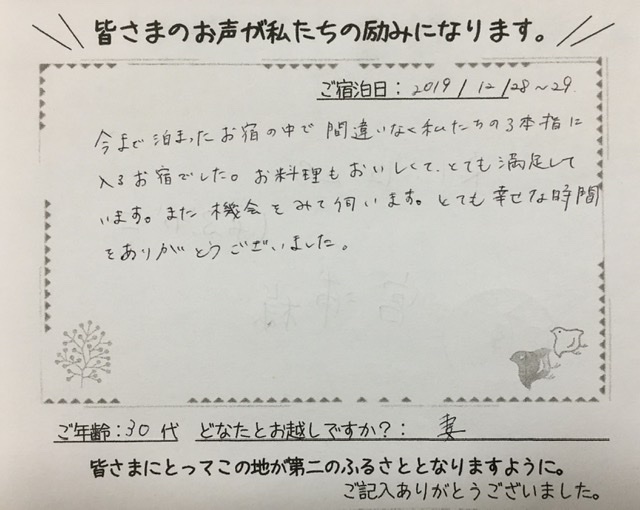 皆さまのお声が私たちの励みになります。
ご宿泊日：2019/12/28～29
今まで泊まったお宿の中で間違いなく私たちの3本指に
入るお宿でした。お料理もおいしくて、とても満足して
います。また機会をみて伺います。とても幸せな時間
をありがとうございました。
ご年齢：30代 どなたとお越しですか？：妻
皆さまにとってこの地が第二のふるさととなりますように。
ご記入ありがとうございました。